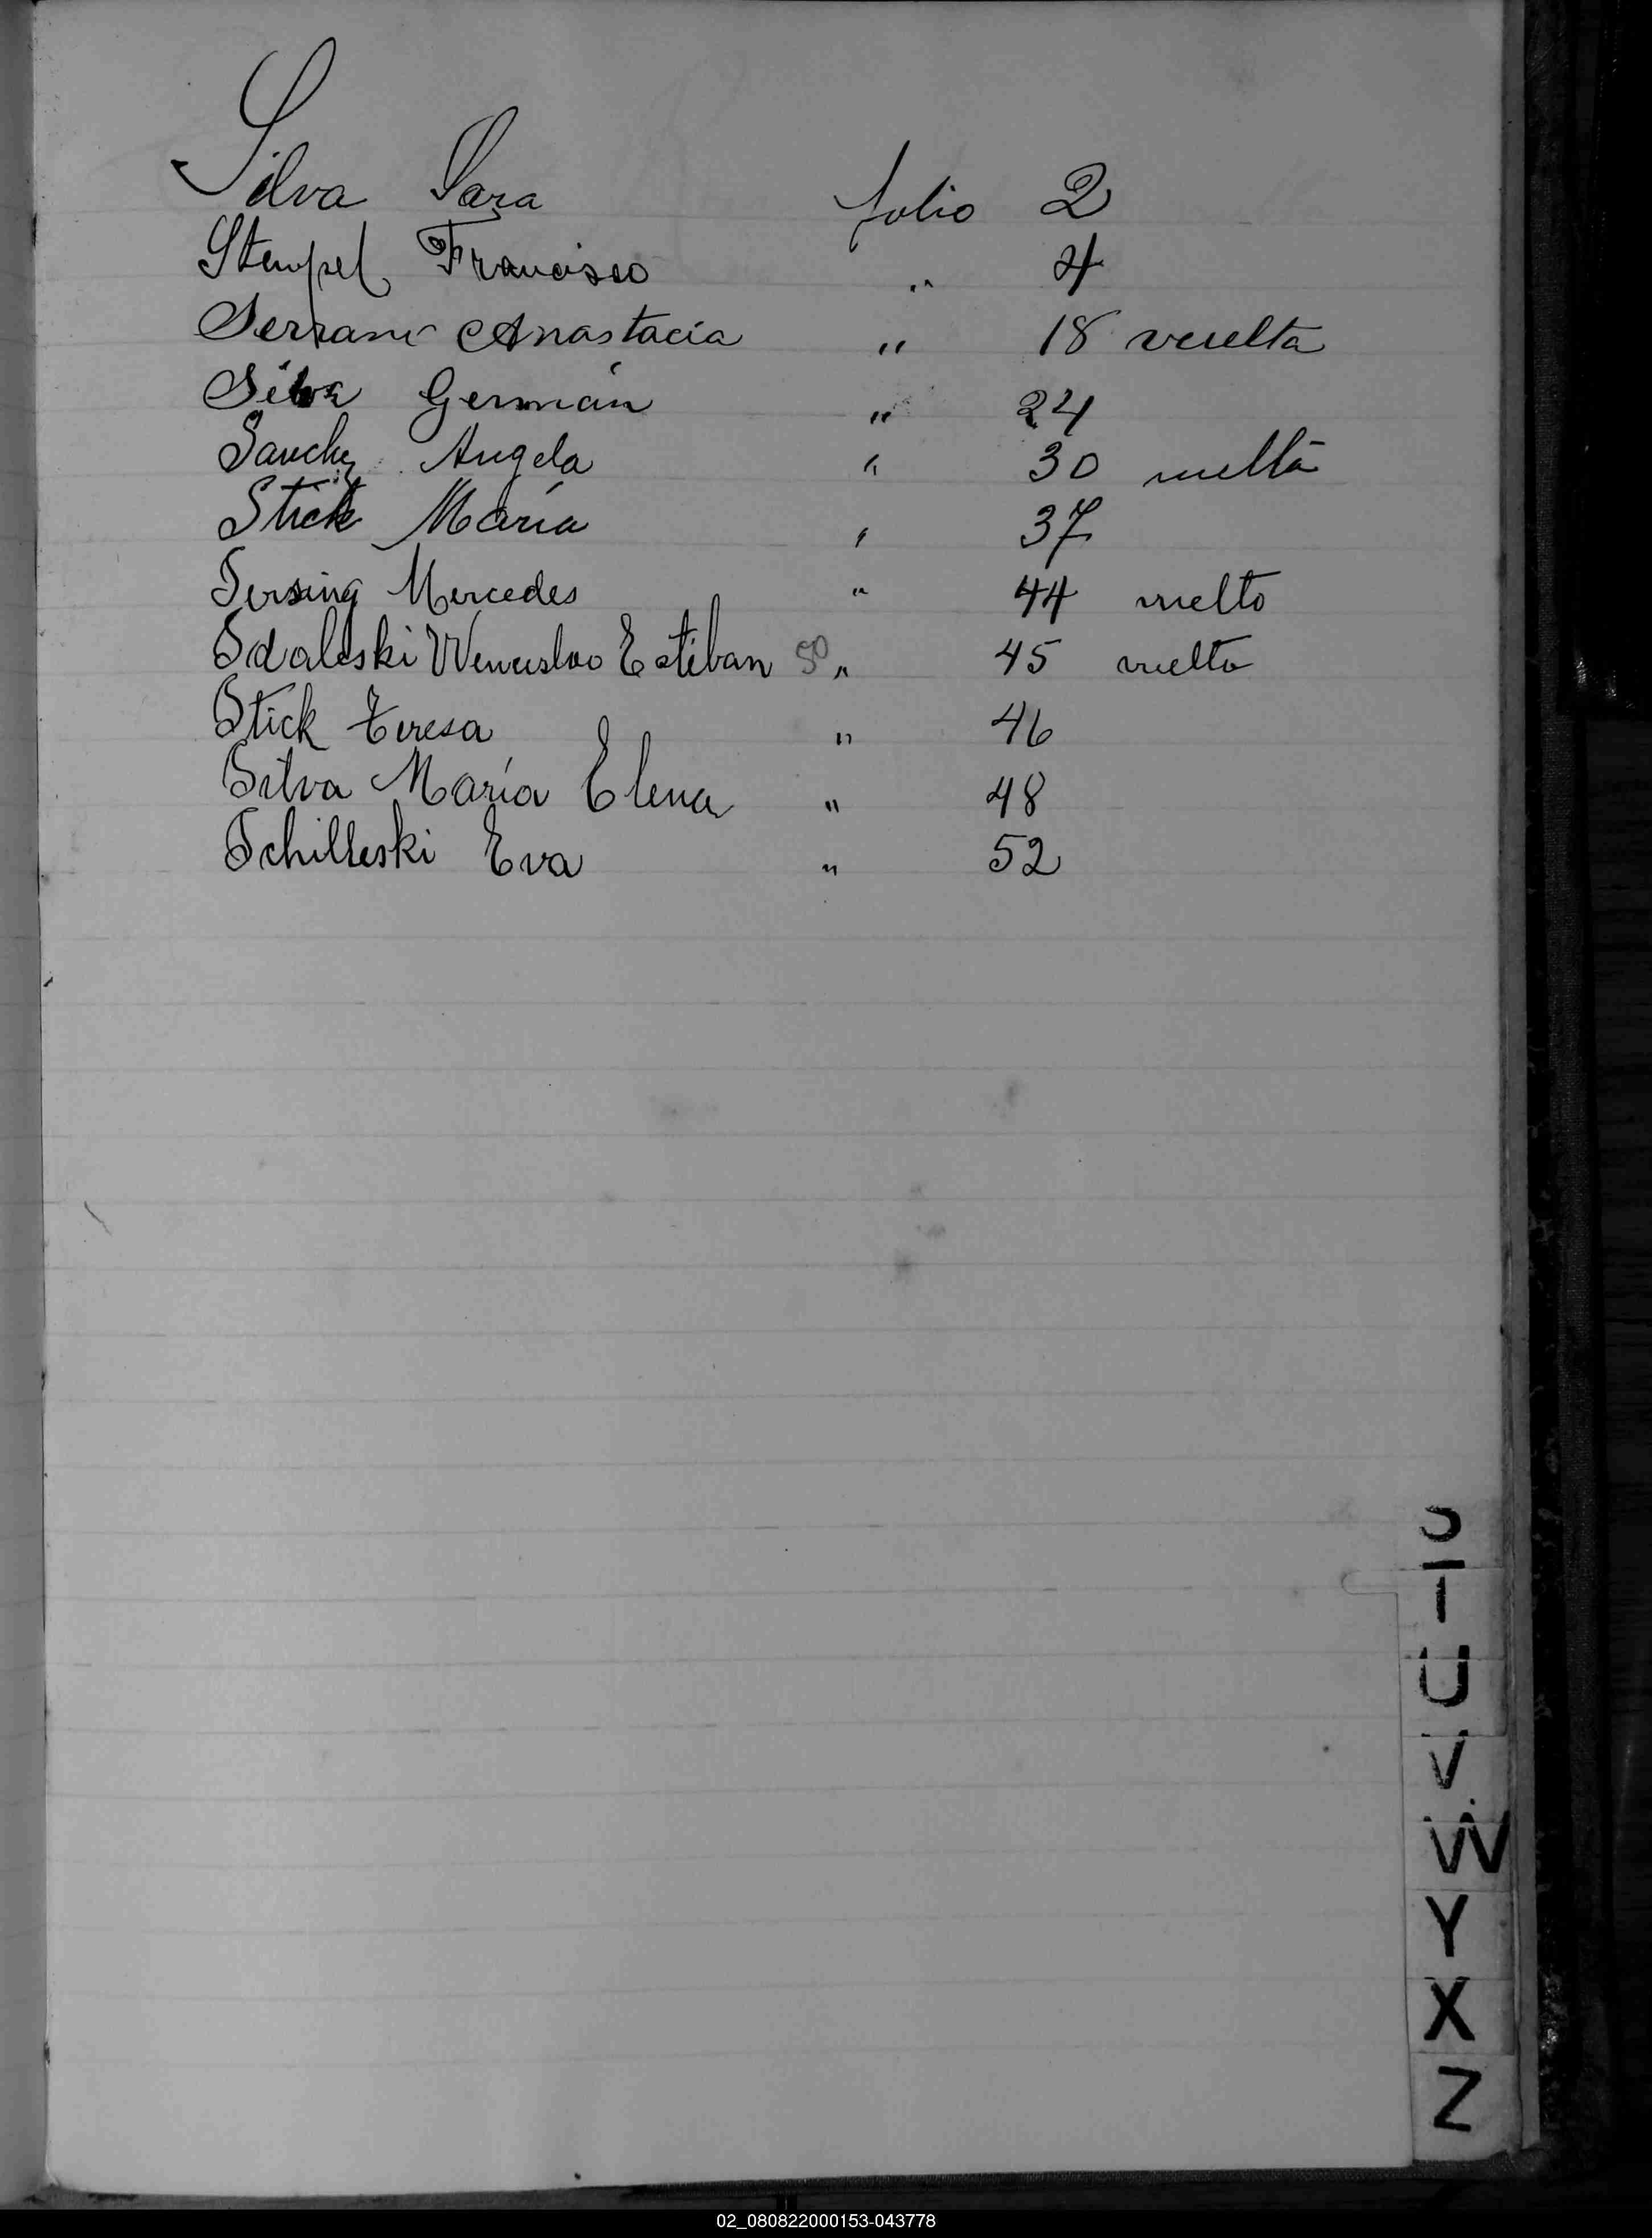 Silva Sara folio 2
Stempel Francisco " 4
Serrano Anastacia " 18 vuelta
Silva Germán " 24
Sanchez Angela " 30 vuelta
Stick María " 37
Sersing Mercedes " 44 vuelto
Sdaleski Wenceslao Esteban 50 " 45 vuelto
Stick Teresa " 46
Silva María Elena " 48
Schilleski Eva " 52
S
T
U
V
W
Y
X
Z
02_080822000153-043778